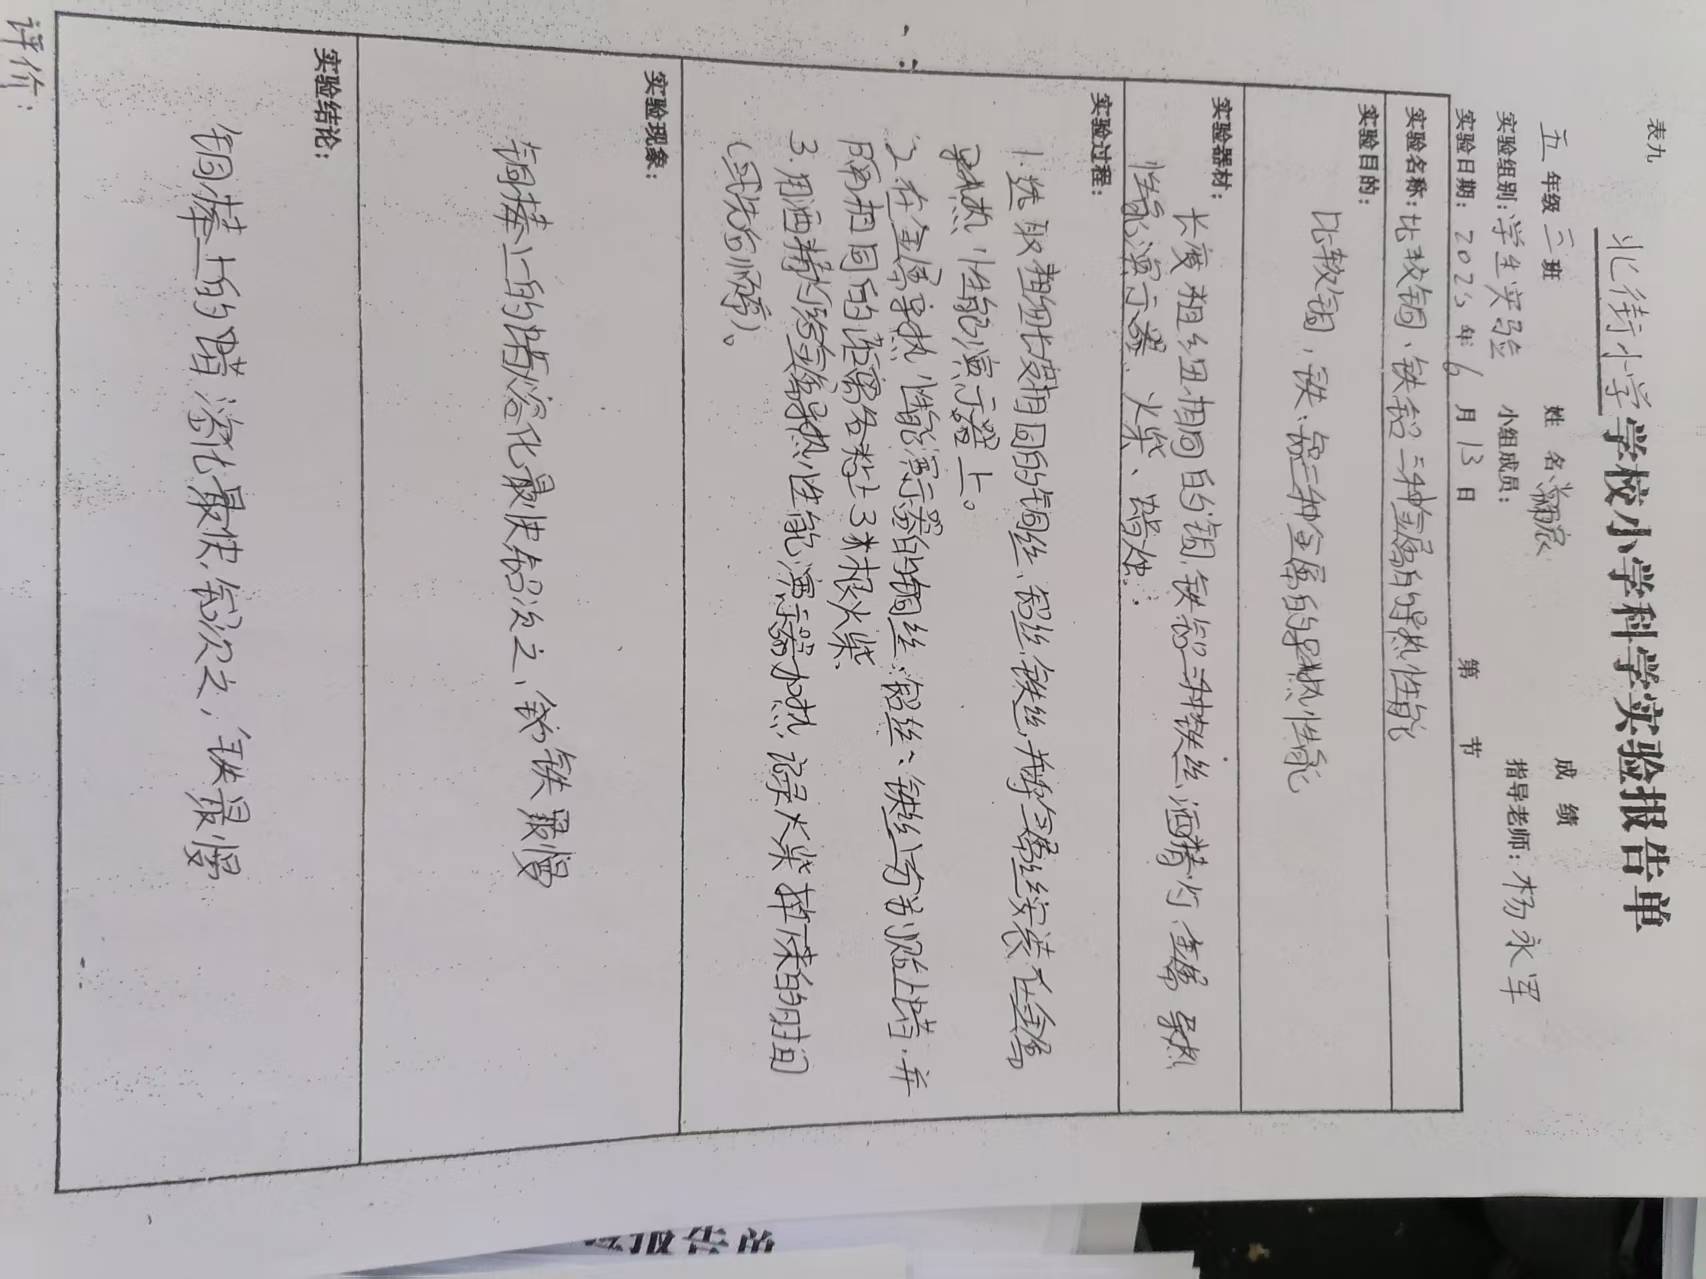 表九
北街小学学校小学科学实验报告单
五年级三班 姓名 成绩
实验组别:学生实验 小组成员: 指导老师:杨永军
实验日期:2025年6月13日 第 节
实验名称:比较铜、铁铝三种金属的导热性能
实验目的:
比较铜,铁、铝三种金属的导热性能
实验器材:
长度粗细相同的铜、铁铝三种铁丝 酒精灯、金属导热
性能演示器、火柴、蜡烛.
实验过程:
1.选取粗细长度相同的铜丝、铝丝、铁丝,并将金属丝安装在金属
导热性能演示器上。
2.在金属导热性能演示器的铜丝、铝丝、铁丝上分别贴上蜡,并
隔相同的距离各粘上3根火柴.
3.用酒精灯给金属导热性能演示器加热,记录火柴掉下来的时间
(或先后顺序)。
实验现象:
铜棒上的蜡熔化最快铝次之,铁最慢
实验结论:
铜棒上的蜡溶化最快,铝次之,铁最慢
评价:
报告单